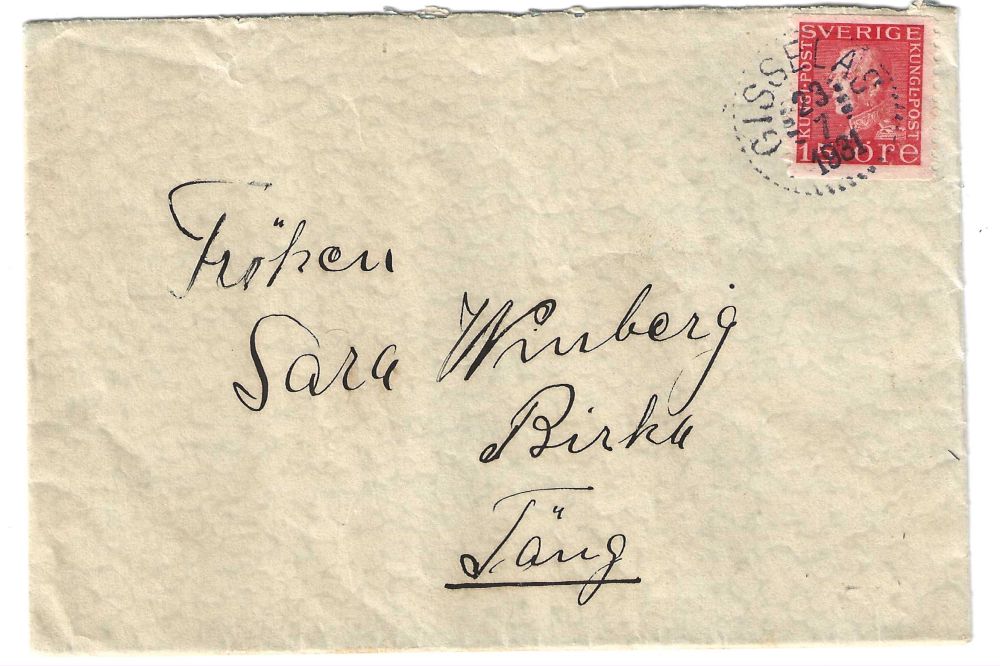 SVERIGE
KUNGL·POST
KUNGL·POST
15 öre
GISSELÅS
23
7
1931
Fröken
Sara Winberg
Birka
Täng